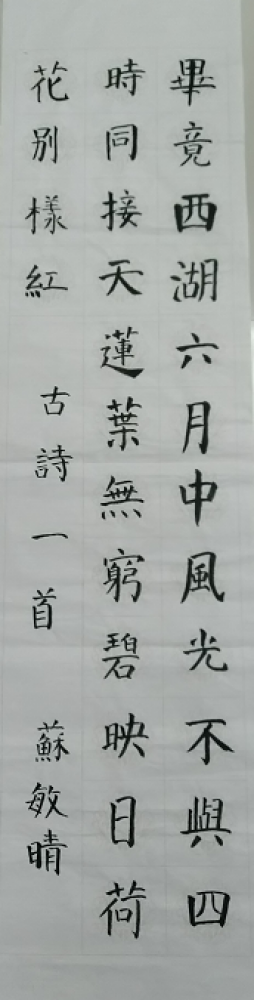 畢竟西湖六月中風光不與四
時同接天蓮葉無窮碧映日荷
花別樣紅 古詩一首 蘇敏晴